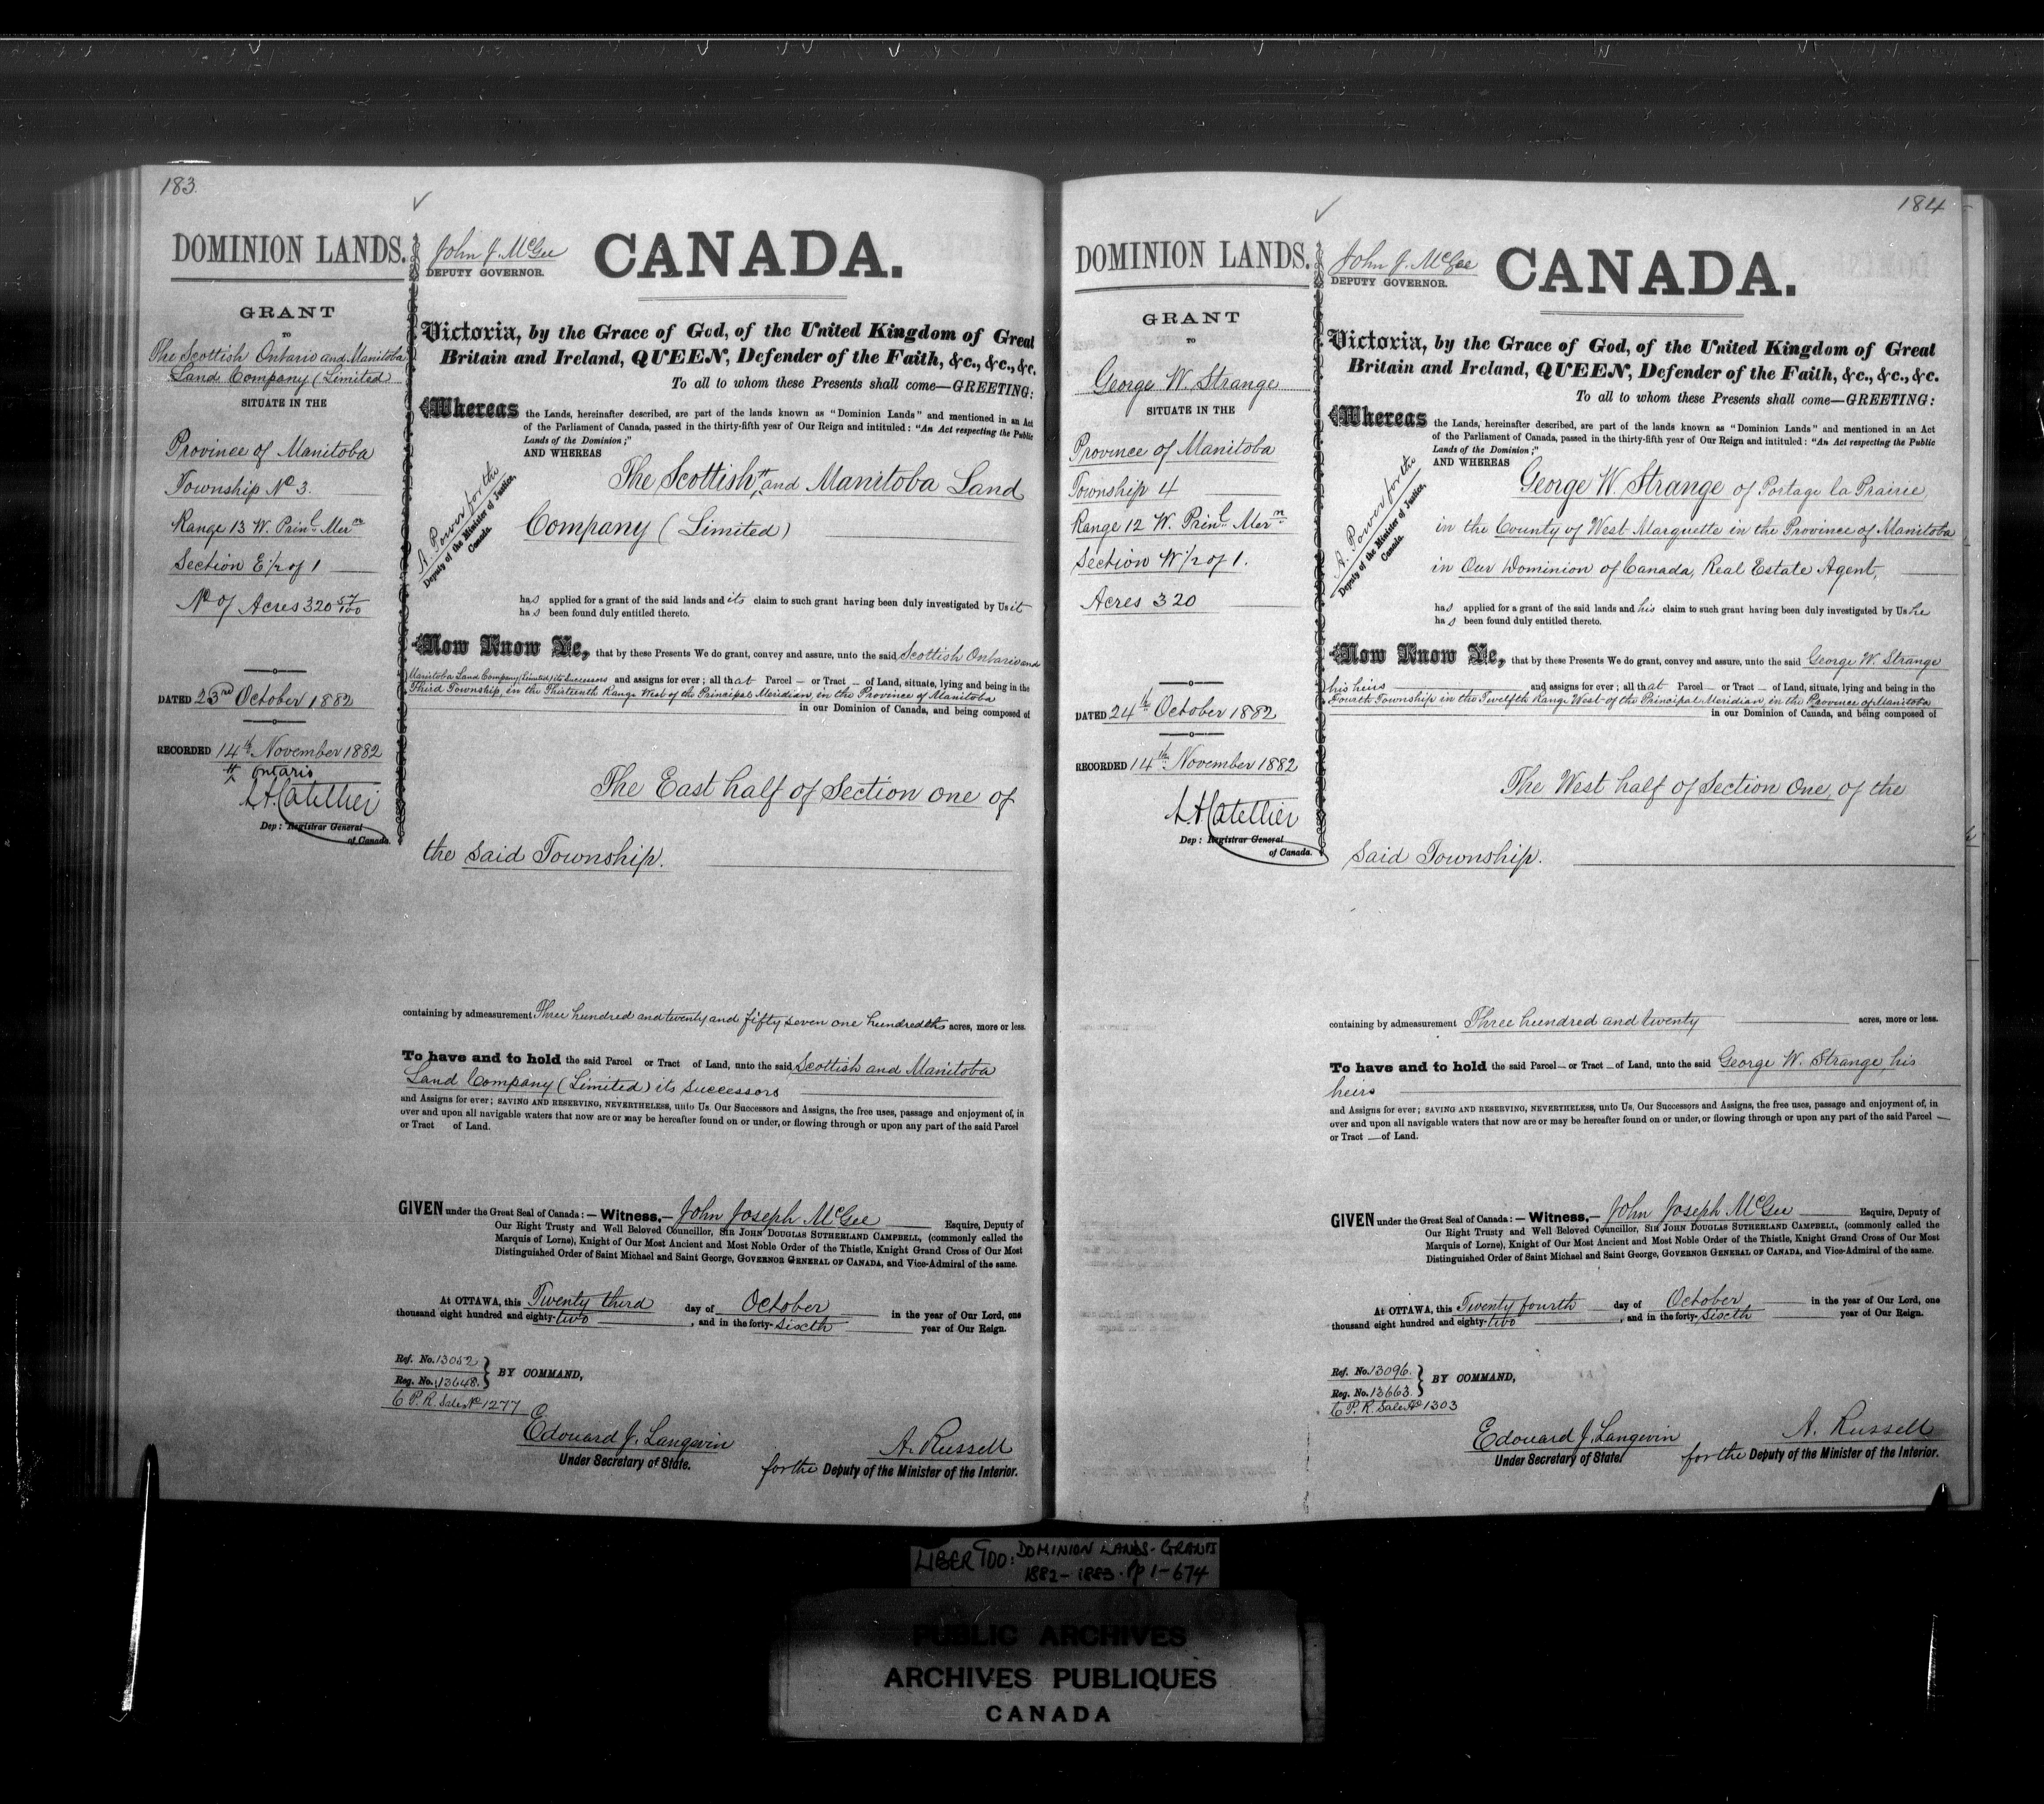 183.
DOMINION LANDS.
GRANT
TO
The Scottish Ontario and Manitoba
Land Company (Limited
SITUATE IN THE
Province of Manitoba
Township No 3.
Range 13 W. Prinl. Mern
Section E 1/2 of 1
No of Acres 320 57/100
DATED 23rd October 1882
RECORDED 14th November 1882
Ontario
L.A. Catellier
Dep: Registrar General
of Canada.
John J. McGee
DEPUTY GOVERNOR.
CANADA.
Victoria, by the Grace of God, of the United Kingdom of Great
Britain and Ireland, QUEEN, Defender of the Faith, &c., &c., &c.
To all to whom these Presents shall come—GREETING:
Whereas the Lands, hereinafter described, are part of the lands known as "Dominion Lands" and mentioned in an Act
of the Parliament of Canada, passed in the thirty-fifth year of Our Reign and intituled: "An Act respecting the Public
Lands of the Dominion;"
AND WHEREAS
The Scottish and Manitoba Land
Company (Limited)
A. Power for the
Deputy of the Minister of Justice,
Canada.
has applied for a grant of the said lands and its claim to such grant having been duly investigated by Us it
has been found duly entitled thereto.
Now Know Ye, that by these Presents We do grant, convey and assure, unto the said Scottish Ontario and
Manitoba Land Company (Limited) its Successors and assigns for ever; all that Parcel — or Tract — of Land, situate, lying and being in the
Third Township, in the Thirteenth Range West of the Principal Meridian, in the Province of Manitoba
in our Dominion of Canada, and being composed of
The East half of Section one of
the said Township.
containing by admeasurement Three hundred and twenty and fifty seven one hundredths acres, more or less.
To have and to hold the said Parcel or Tract of Land, unto the said Scottish and Manitoba
Land Company (Limited) its Successors
and Assigns for ever; SAVING AND RESERVING, NEVERTHELESS, unto Us, Our Successors and Assigns, the free uses, passage and enjoyment of, in
over and upon all navigable waters that now are or may be hereafter found on or under, or flowing through or upon any part of the said Parcel
or Tract of Land.
GIVEN under the Great Seal of Canada:—Witness,— John Joseph McGee Esquire, Deputy of
Our Right Trusty and Well Beloved Councillor, SIR JOHN DOUGLAS SUTHERLAND CAMPBELL, (commonly called the
Marquis of Lorne), Knight of Our Most Ancient and Most Noble Order of the Thistle, Knight Grand Cross of Our Most
Distinguished Order of Saint Michael and Saint George, GOVERNOR GENERAL OF CANADA, and Vice-Admiral of the same.
At OTTAWA, this Twenty third day of October in the year of Our Lord, one
thousand eight hundred and eighty-two, and in the forty-sixth year of Our Reign.
Ref. No. 13052
Reg. No. 13648.
BY COMMAND,
C.P.R. Sales No 1277
Edouard J. Langevin
Under Secretary of State.
A. Russell
for the Deputy of the Minister of the Interior.
184
DOMINION LANDS.
GRANT
TO
George W. Strange
SITUATE IN THE
Province of Manitoba
Township 4
Range 12 W. Prinl. Mern
Section W 1/2 of 1.
Acres 320
DATED 24th October 1882
RECORDED 14th November 1882
L.A. Catellier
Dep: Registrar General
of Canada.
John J. McGee
DEPUTY GOVERNOR.
CANADA.
Victoria, by the Grace of God, of the United Kingdom of Great
Britain and Ireland, QUEEN, Defender of the Faith, &c., &c., &c.
To all to whom these Presents shall come—GREETING:
Whereas the Lands, hereinafter described, are part of the lands known as "Dominion Lands" and mentioned in an Act
of the Parliament of Canada, passed in the thirty-fifth year of Our Reign and intituled: "An Act respecting the Public
Lands of the Dominion;"
AND WHEREAS
George W. Strange of Portage la Prairie,
in the County of West Marquette in the Province of Manitoba
in Our Dominion of Canada, Real Estate Agent,
A. Power for the
Deputy of the Minister of Justice,
Canada.
has applied for a grant of the said lands and his claim to such grant having been duly investigated by Us he
has been found duly entitled thereto.
Now Know Ye, that by these Presents We do grant, convey and assure, unto the said George W. Strange
his heirs and assigns for ever; all that Parcel — or Tract — of Land, situate, lying and being in the
Fourth Township in the Twelfth Range West of the Principal Meridian, in the Province of Manitoba
in our Dominion of Canada, and being composed of
The West half of Section One, of the
said Township.
containing by admeasurement Three hundred and twenty acres, more or less.
To have and to hold the said Parcel — or Tract — of Land, unto the said George W. Strange, his
heirs
and Assigns for ever; SAVING AND RESERVING, NEVERTHELESS, unto Us, Our Successors and Assigns, the free uses, passage and enjoyment of, in
over and upon all navigable waters that now are or may be hereafter found on or under, or flowing through or upon any part of the said Parcel —
or Tract — of Land.
GIVEN under the Great Seal of Canada:—Witness,— John Joseph McGee Esquire, Deputy of
Our Right Trusty and Well Beloved Councillor, SIR JOHN DOUGLAS SUTHERLAND CAMPBELL, (commonly called the
Marquis of Lorne), Knight of Our Most Ancient and Most Noble Order of the Thistle, Knight Grand Cross of Our Most
Distinguished Order of Saint Michael and Saint George, GOVERNOR GENERAL OF CANADA, and Vice-Admiral of the same.
At OTTAWA, this Twenty fourth day of October in the year of Our Lord, one
thousand eight hundred and eighty-two, and in the forty-sixth year of Our Reign.
Ref. No. 13096.
Reg. No. 13663.
BY COMMAND,
C.P.R. Sales No 1303
Edouard J. Langevin
Under Secretary of State.
A. Russell
for the Deputy of the Minister of the Interior.
LIBER 900: DOMINION LANDS-GRANTS
1882-1883. Pp 1-674
PUBLIC ARCHIVES
ARCHIVES PUBLIQUES
CANADA